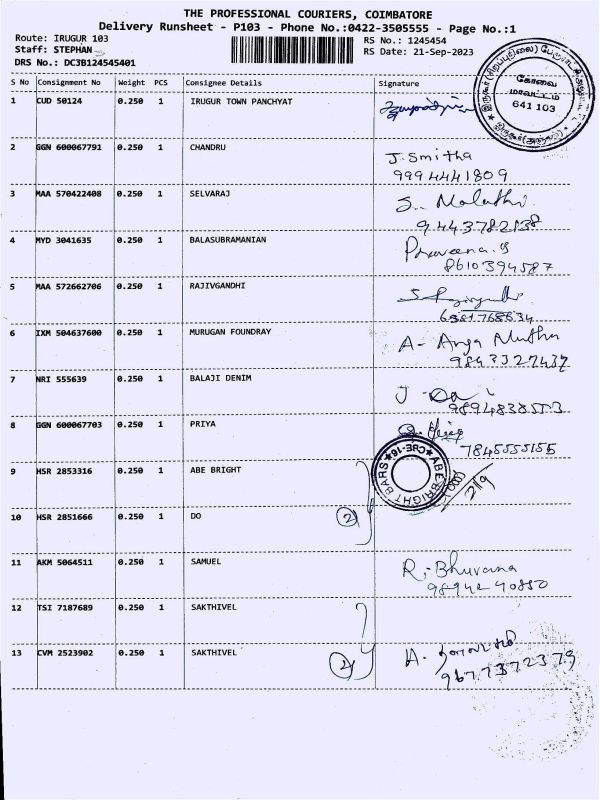 THE PROFESSIONAL COURIERS, COIMBATORE
Delivery Runsheet - P103 - Phone No.:0422-3505555 - Page No.:1
Route: IRUGUR 103
RS No.: 1245454
Staff: STEPHAN
RS Date: 21-Sep-2023
DRS No.: DC3B124545401
S No Consignment No Weight PCS Consignee Details Signature
1 CUD 50124 0.250 1 IRUGUR TOWN PANCHYAT
கோவை
மாவட்டம்
641 103
2 GGN 600067791 0.250 1 CHANDRU J. Smitha
9994441809
3 MAA 570422408 0.250 1 SELVARAJ S. Malathi
9443782838
4 MYD 3041635 0.250 1 BALASUBRAMANIAN Praveena.S
8610394587
5 MAA 572662706 0.250 1 RAJIVGANDHI
6 IXM 504637600 0.250 1 MURUGAN FOUNDRAY A-
9843327437
7 NRI 555639 0.250 1 BALAJI DENIM J
8 GGN 600067703 0.250 1 PRIYA
7845555155
9 HSR 2853316 0.250 1 ABE BRIGHT
ABE BRIGHT BARS CBE-16
21/9
10 HSR 2851666 0.250 1 DO 2
11 AKM 5064511 0.250 1 SAMUEL R. Bhuvana
9894240850
12 TSI 7187689 0.250 1 SAKTHIVEL
13 CVM 2523902 0.250 1 SAKTHIVEL 2
9677372379